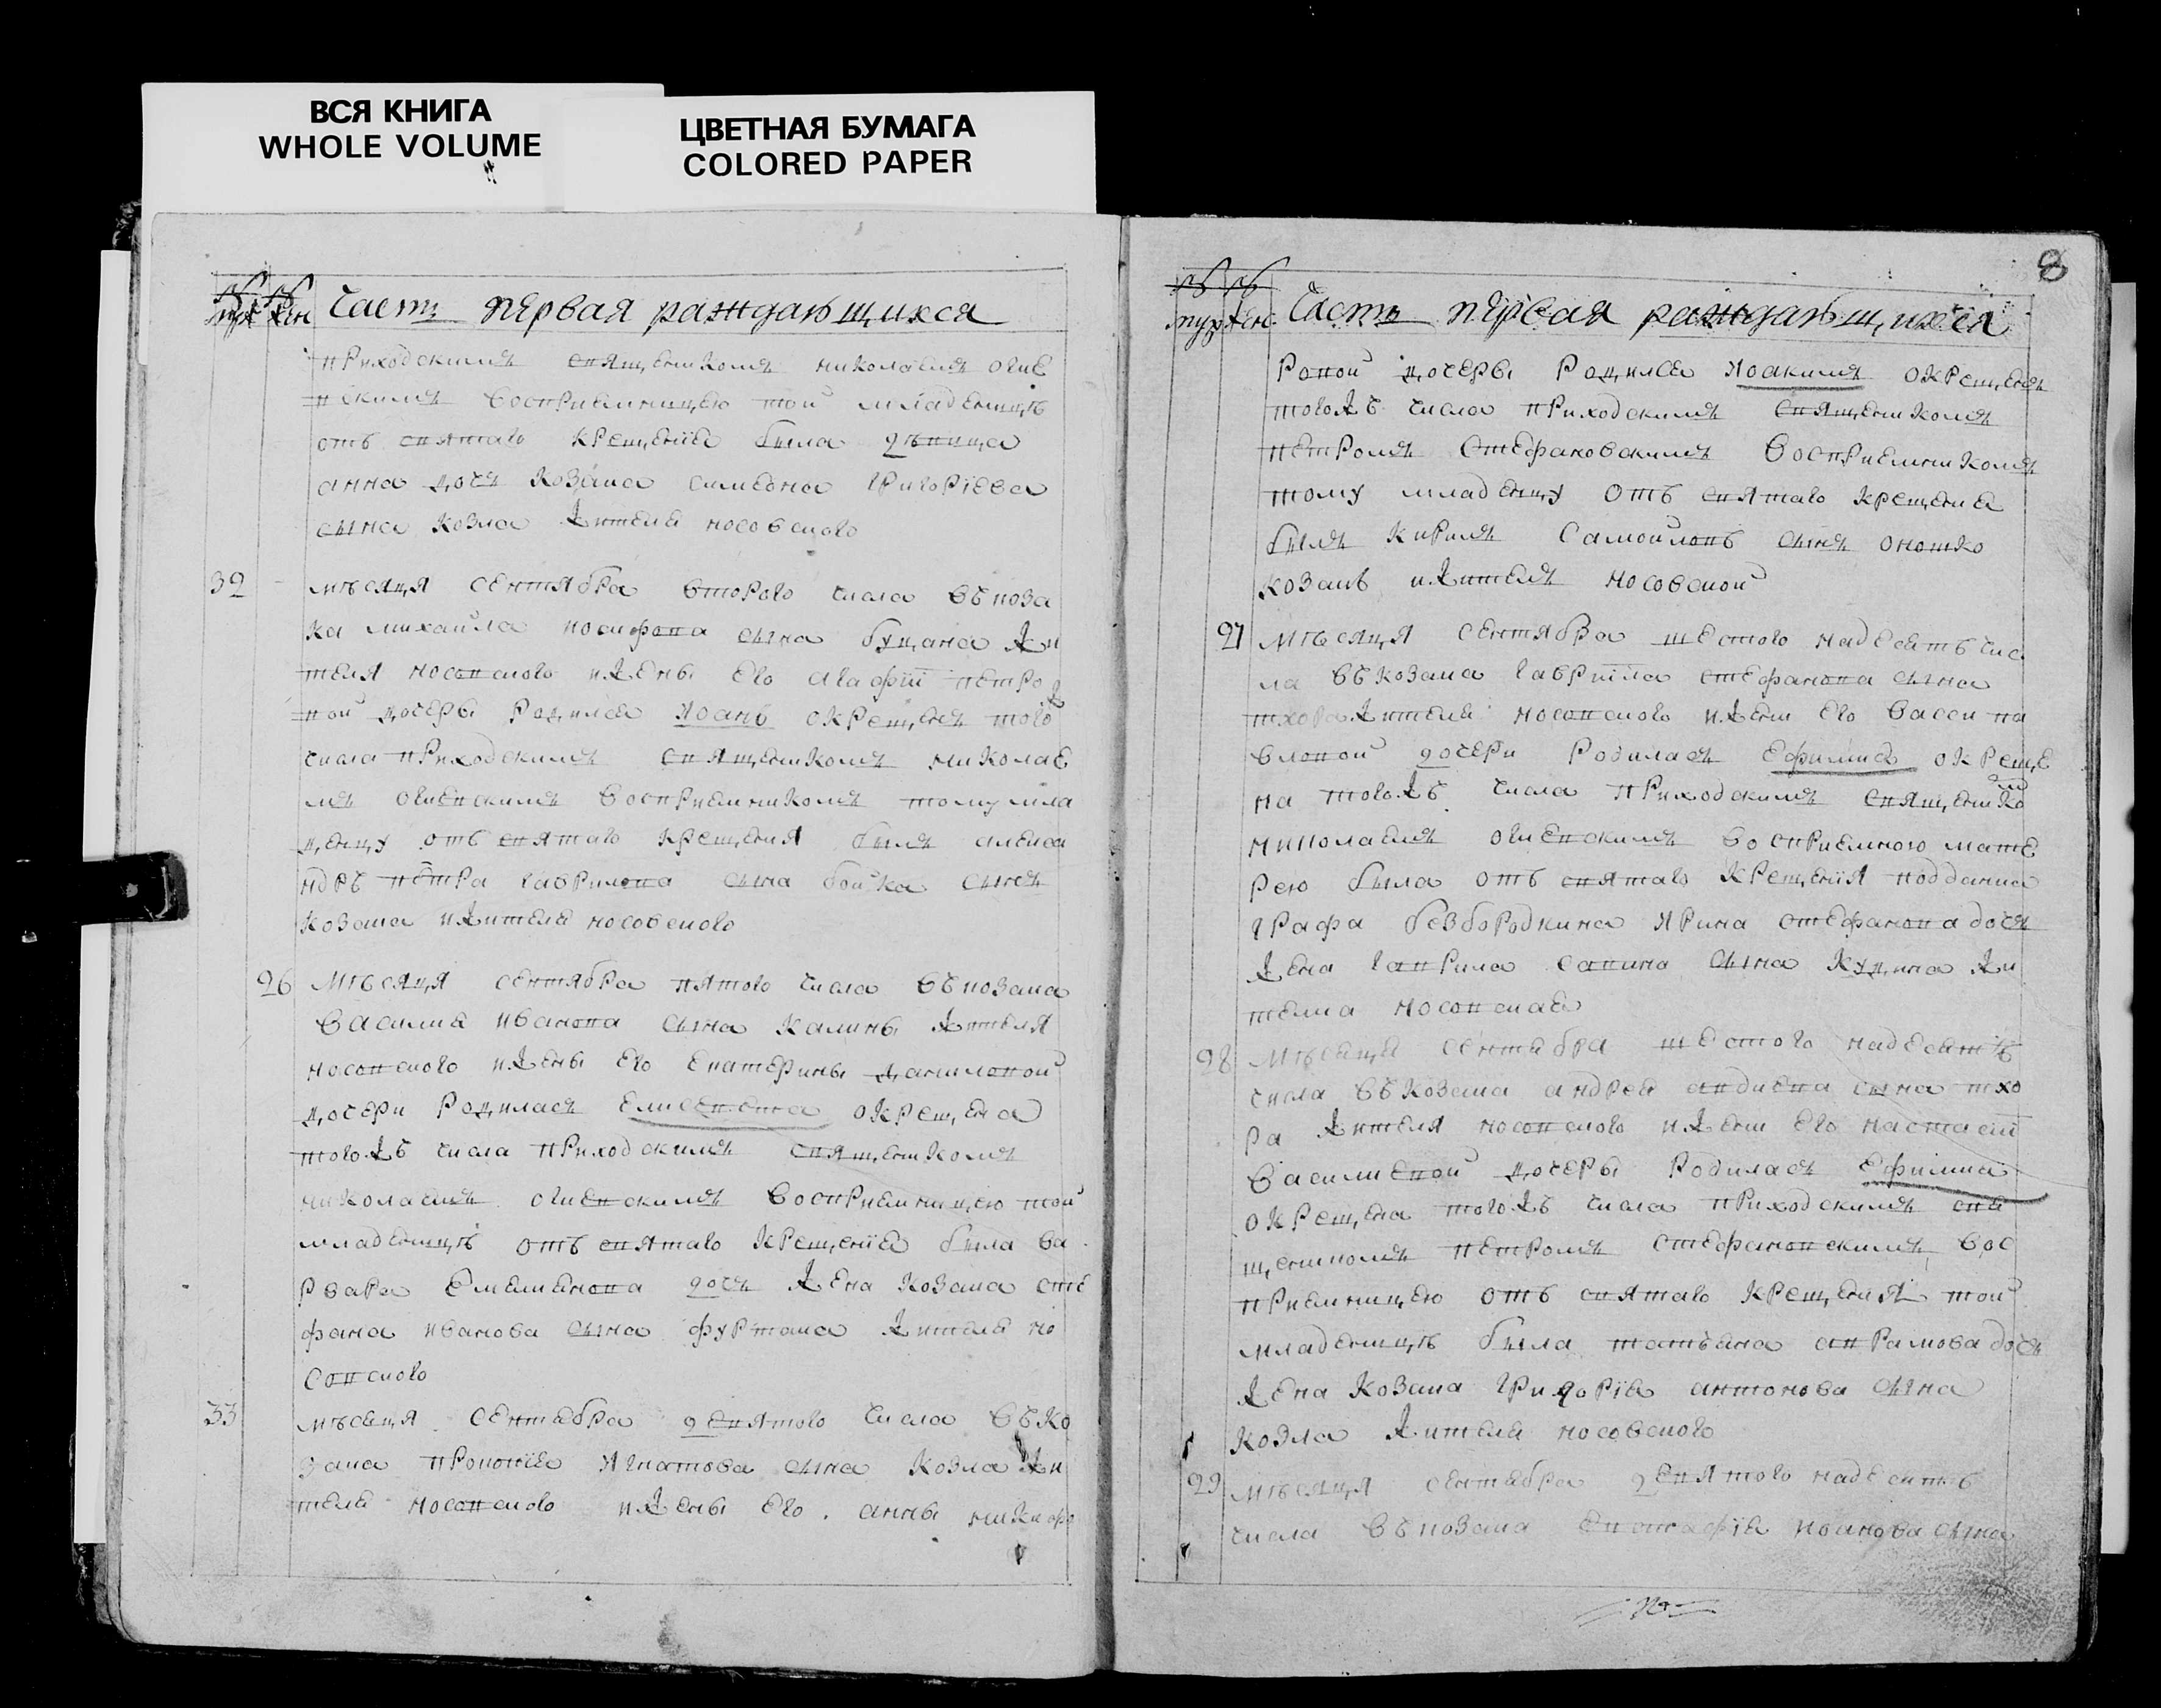 ВСЯ КНИГА
WHOLE VOLUME
ЦВЕТНАЯ БУМАГА
COLORED PAPER
Часть первая раждающихся
приходскимъ священикомъ николаемъ огиев
скимъ восприемницею той младеницѣ
отъ святаго крещенїя была дѣвица
анна дочь козака симеона григорїева
сына козла жителя носовского
32 мѣсяця сентября второго числа въ коза
ка михайла иосифова сына буцана жи
теля носовского и жены его агафїи петро
вой дочеры родился Иоанъ окрещенъ тогож
числа приходскимъ священикомъ николае
мъ огиевскимъ восприемникомъ тому мла
денцу отъ святаго крещения былъ алекса
ндръ петра гаврилова сына бойка сынъ
козака и жителя носовского
26 Мѣсяця сентября пятого числа въ козака
Василия иванова сына калины жителя
носовского и жены его екатерины даниловой
дочери родилась Елисевета окрещена
тогожъ числа приходскимъ священикомъ
николаемъ огиевскимъ восприемницею той
младеницѣ отъ святаго крещенїя была ва
рвара Емелиенова дочь жена козака сте
фана иванова сына фуртаса жителя но
совского
33 мѣсяця сентября девятого числа въ ко
зака прокопїя Игнатова сына козла жи
теля носовского и жены его анны никифо
8
Часть первая раждающихся
ровой дочеры родился Иоакимъ окрещенъ
тогожъ числа приходскимъ священикомъ
петромъ Стефановскимъ восприемникомъ
тому младенцу отъ святаго крещения
былъ кирилъ Самойловъ сынъ оношко
козакъ и житель носовской
27 Мѣсяця сентября шестого надесять чис
ла въ козака гавриїла стефанова сына
тхора жителя носовского и жени его васси па
вловой дочери родилась Ефимия окреще
на тогожъ числа приходскимъ священико
мъ
николаемъ огиевскимъ восприемною мате
рею была отъ святаго крещенїя подданка
графа безбородкина Ярина стефанова дочь
жена гаврила савина сына куцина жи
телка носовская
28 Мѣсяця сентября шестого надесять
числа въ козака андрея авдиева сына тхо
ра жителя носовского и жени его настасїи
Василиевой дочеры родилась Ефимия
окрещена тогожъ числа приходскимъ свя
щеникомъ петромъ стефановскимъ вос
приемницею отъ святаго крещения той
младеницѣ была татьяна аврамова дочь
жена козака григорїя антонова сына
козла жителя носовского
29 мѣсяця сентября девятого надесять
числа въ козака Евстафїя иванова сына